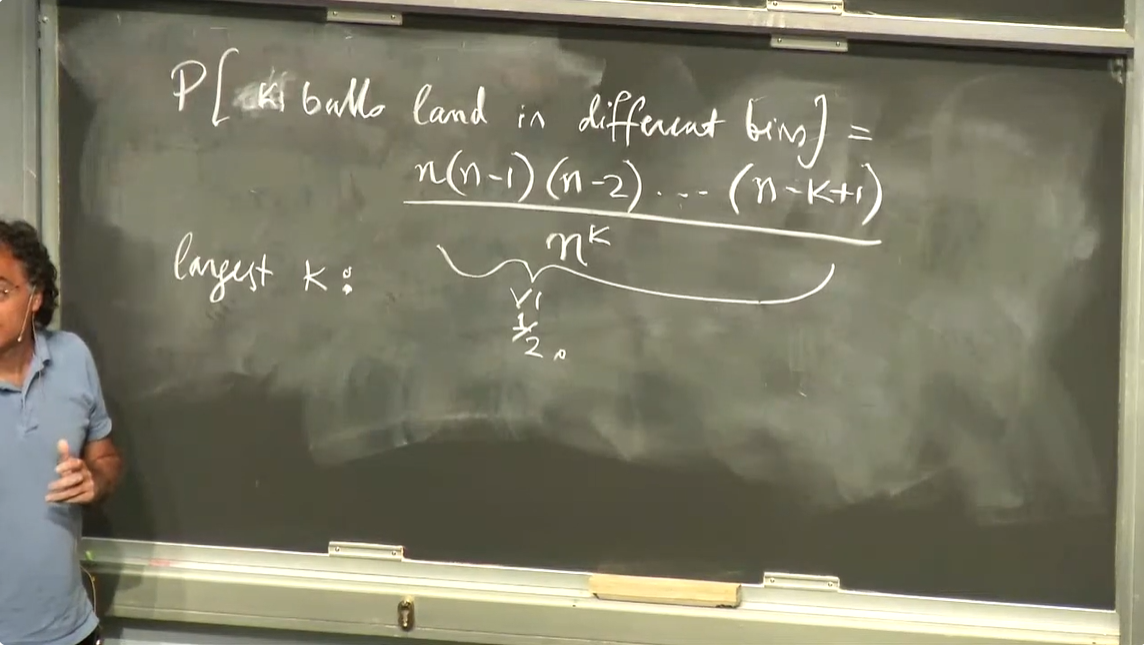 P[ k balls land in different bins] =
n(n-1)(n-2)...(n-k+1)
n^k
largest k:
≥
1/2.